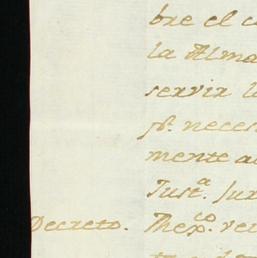 bre el c
la Alma
servir l
pr. neces
mente a
Just.a Jur
Decreto. Mex.co ve